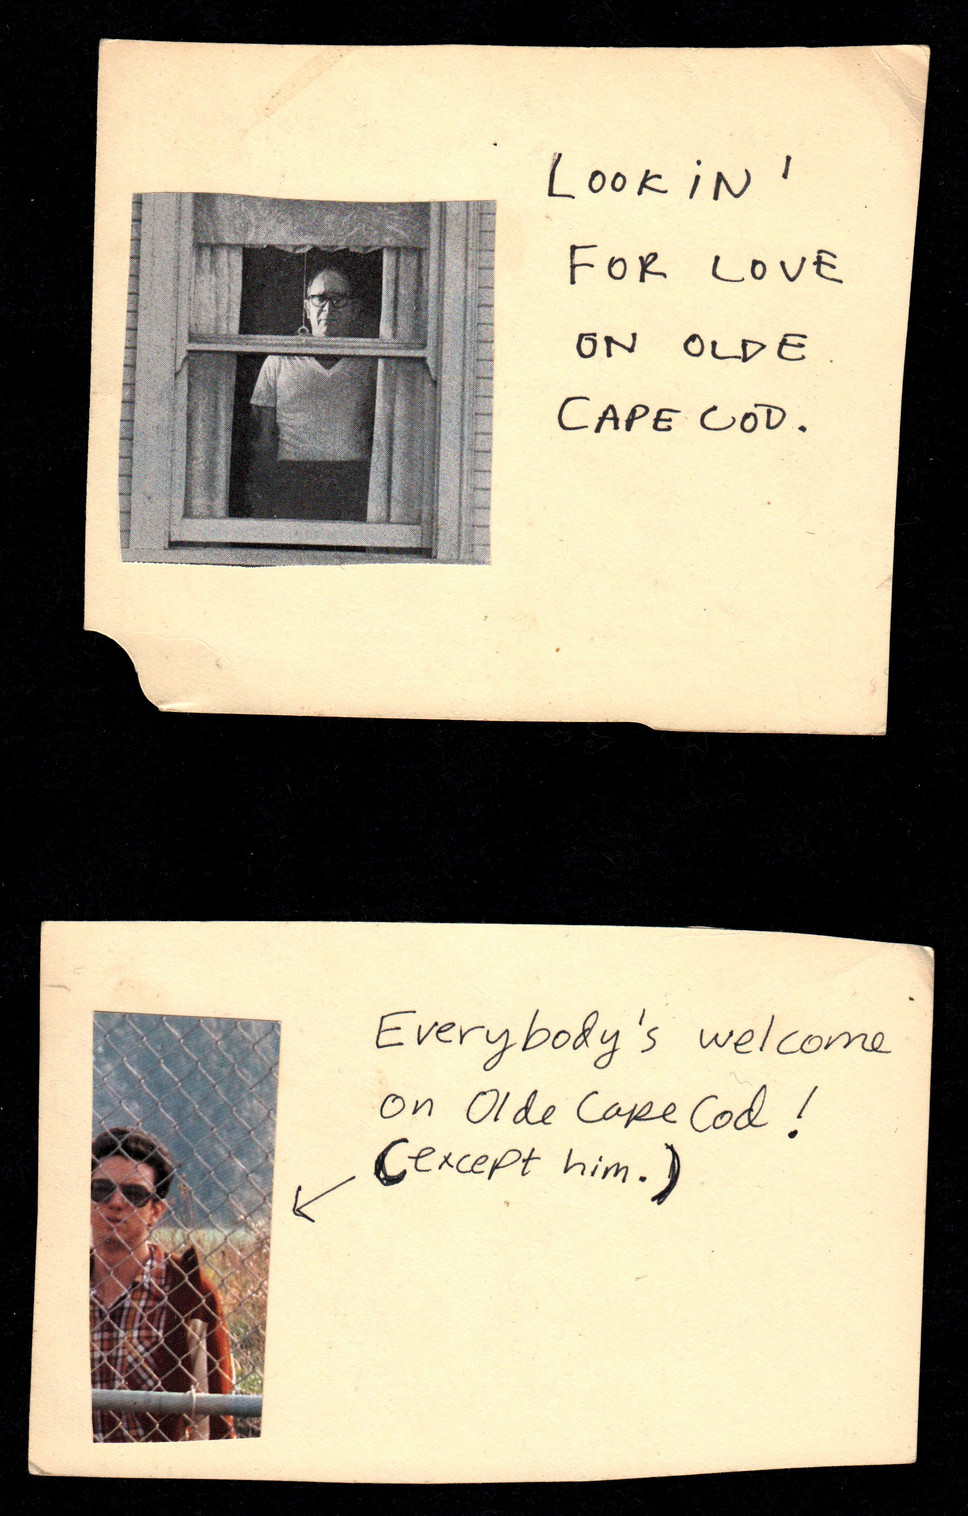 LOOKiN'
FOR LOVE
ON OLDE
CAPE COD.
Everybody's welcome
on Olde Cape Cod!
(except him.)